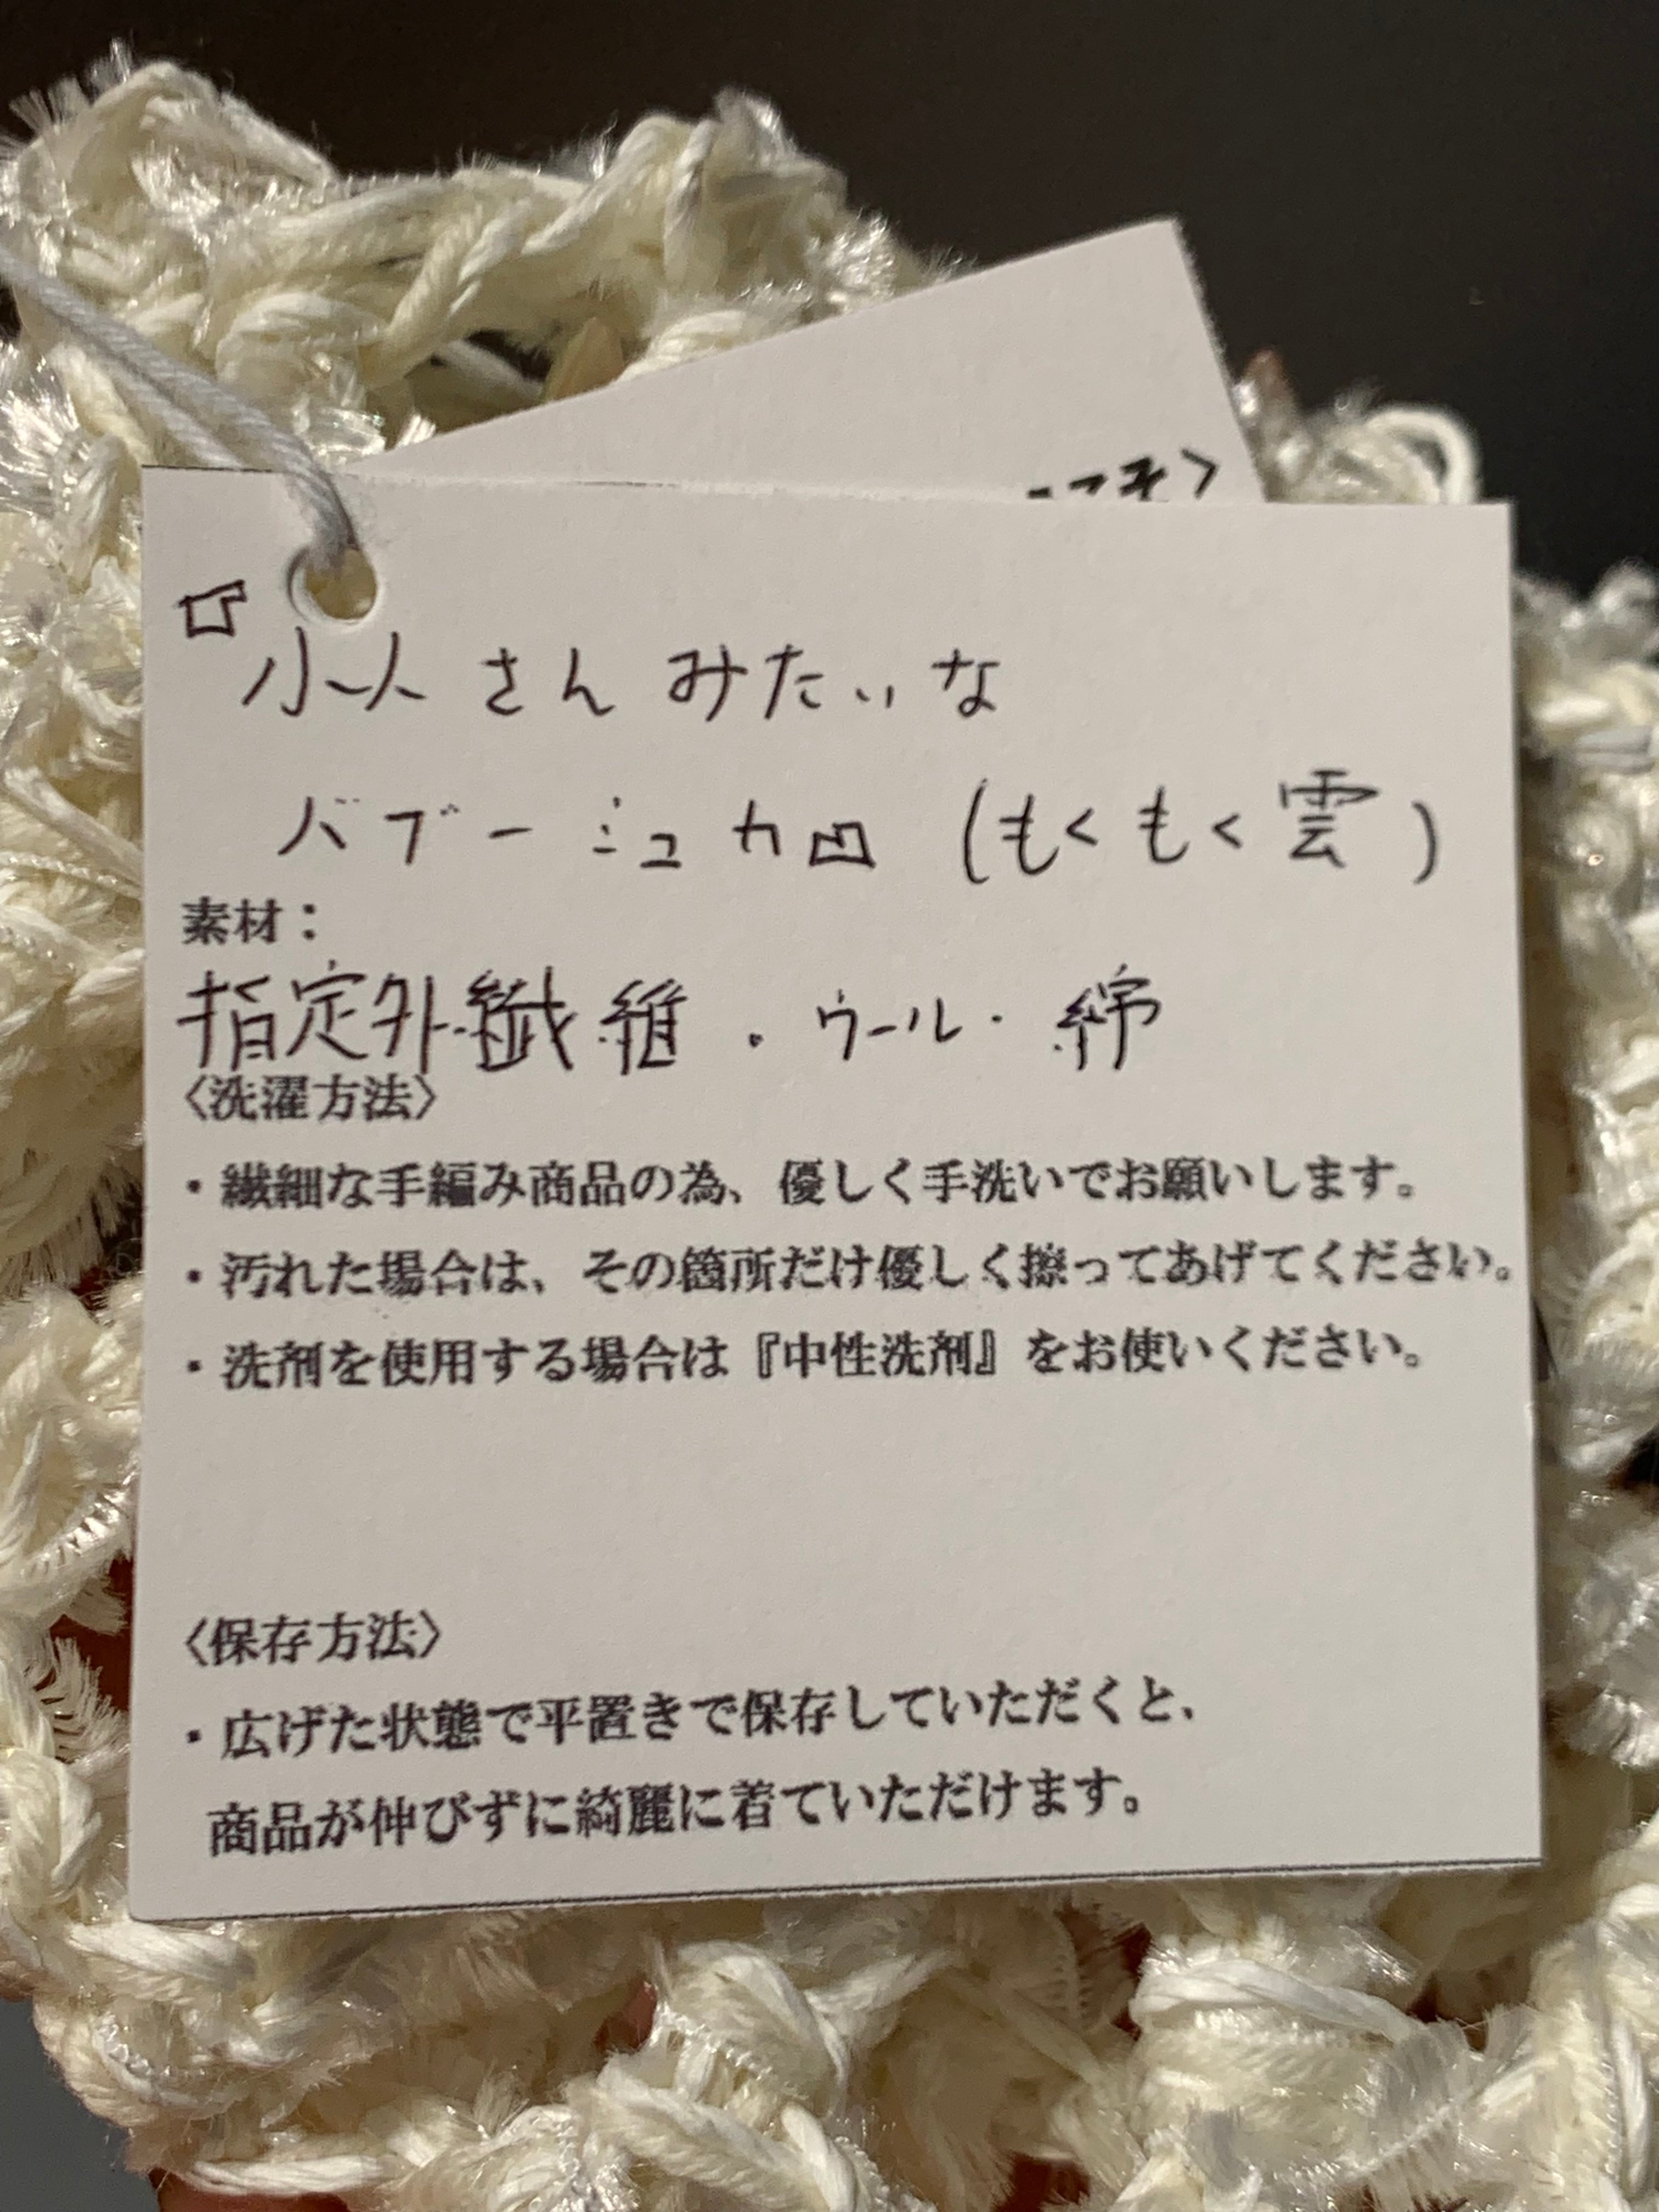 『小人さんみたいな
バブーシュカ』(もくもく雲)
素材：
指定外繊維・ウール・綿
〈洗濯方法〉
・繊細な手編み商品の為、優しく手洗いでお願いします。
・汚れた場合は、その箇所だけ優しく擦ってあげてください。
・洗剤を使用する場合は『中性洗剤』をお使いください。
〈保存方法〉
・広げた状態で平置きで保存していただくと、
商品が伸びずに綺麗に着ていただけます。